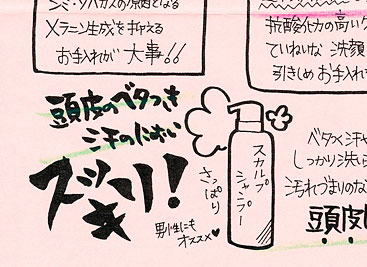 シミ・ソバカスの原因となる
メラニン生成をおさえる
お手入れが 大事!!
抗酸化力の高い
ていねいな 洗顔
引きしめ お手入れ
頭皮のベタつき
汗のにおい
ズッキリ!
さっぱり
男性にも
オススメ♥
スカルプ
シャンプー
ベタベタ汗や
しっかり洗い
汚れづまりのな
頭皮